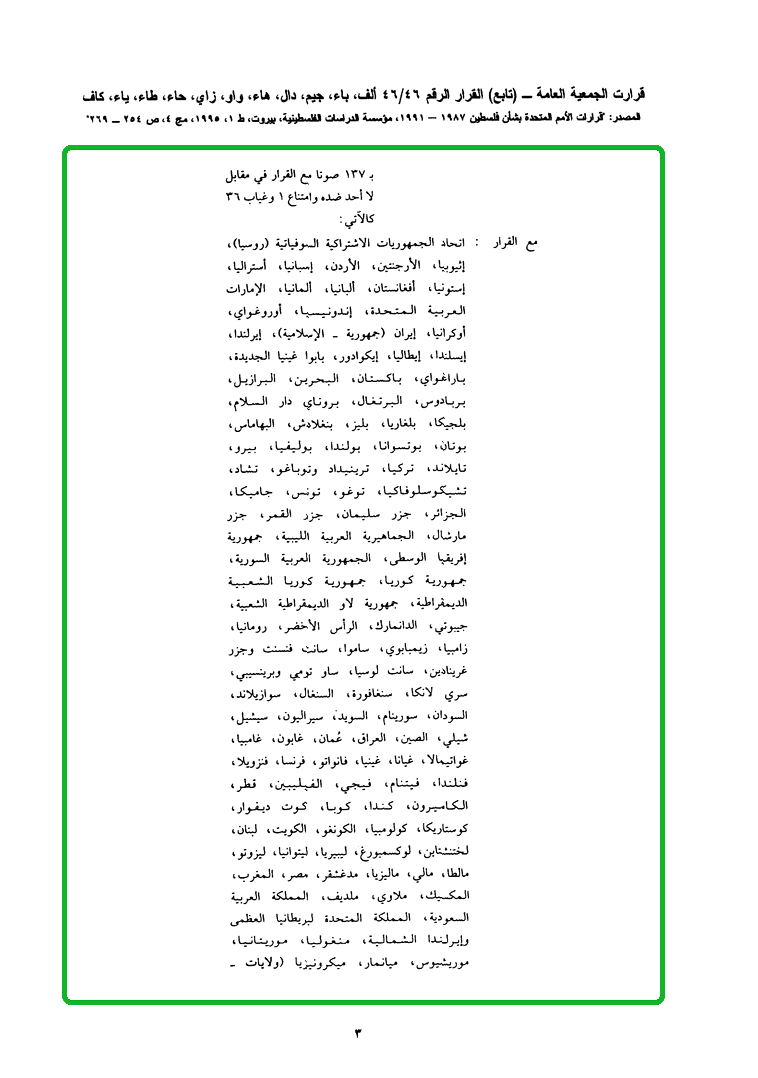 قرارت الجمعية العامة ــ (تابع) القرار الرقم ٤٦/٤٦ ألف، باء، جيم، دال، هاء، واو، زاي، حاء، طاء، ياء، كاف
المصدر: "قرارات الأمم المتحدة بشأن فلسطين ١٩٨٧ – ١٩٩١، مؤسسة الدراسات الفلسطينية، بيروت، ط ١، ١٩٩٥، مج ٤، ص ٢٥٤ ــ ٢٦٩"
بـ ١٣٧ صوتا مع القرار في مقابل
لا أحد ضده وامتناع ١ وغياب ٣٦
كالآتي:
مع القرار : اتحاد الجمهوريات الاشتراكية السوفياتية (روسيا)،
إثيوبيا، الأرجنتين، الأردن، إسبانيا، أستراليا،
إستونيا، أفغانستان، ألبانيا، ألمانيا، الإمارات
العربية المتحدة، إندونيسيا، أوروغواي،
أوكرانيا، إيران (جمهورية ـ الإسلامية)، إيرلندا،
إيسلندا، إيطاليا، إيكوادور، بابوا غينيا الجديدة،
باراغواي، باكستان، البحرين، البرازيل،
بربادوس، البرتغال، بروناي دار السلام،
بلجيكا، بلغاريا، بليز، بنغلادش، البهاماس،
بوتان، بوتسوانا، بولندا، بوليفيا، بيرو،
تايلاند، تركيا، ترينيداد وتوباغو، تشاد،
تشيكوسلوفاكيا، توغو، تونس، جاميكا،
الجزائر، جزر سليمان، جزر القمر، جزر
مارشال، الجماهيرية العربية الليبية، جمهورية
إفريقيا الوسطى، الجمهورية العربية السورية،
جمهورية كوريا، جمهورية كوريا الشعبية
الديمقراطية، جمهورية لاو الديمقراطية الشعبية،
جيبوتي، الدانمارك، الرأس الأخضر، رومانيا،
زامبيا، زيمبابوي، ساموا، سانت فنسنت وجزر
غرينادين، سانت لوسيا، ساو تومي وبرينسيبي،
سري لانكا، سنغافورة، السنغال، سوازيلاند،
السودان، سورينام، السويد، سيراليون، سيشيل،
شيلي، الصين، العراق، عُمان، غابون، غامبيا،
غواتيمالا، غيانا، غينيا، فانواتو، فرنسا، فنزويلا،
فنلندا، فيتنام، فيجي، الفيليبين، قطر،
الكاميرون، كندا، كوبا، كوت ديفوار،
كوستاريكا، كولومبيا، الكونغو، الكويت، لبنان،
لختنشتاين، لوكسمبورغ، ليبيريا، ليتوانيا، ليزوتو،
مالطا، مالي، ماليزيا، مدغشقر، مصر، المغرب،
المكسيك، ملاوي، ملديف، المملكة العربية
السعودية، المملكة المتحدة لبريطانيا العظمى
وإيرلندا الشمالية، منغوليا، موريتانيا،
موريشيوس، ميانمار، ميكرونيزيا (ولايات ـ
٣